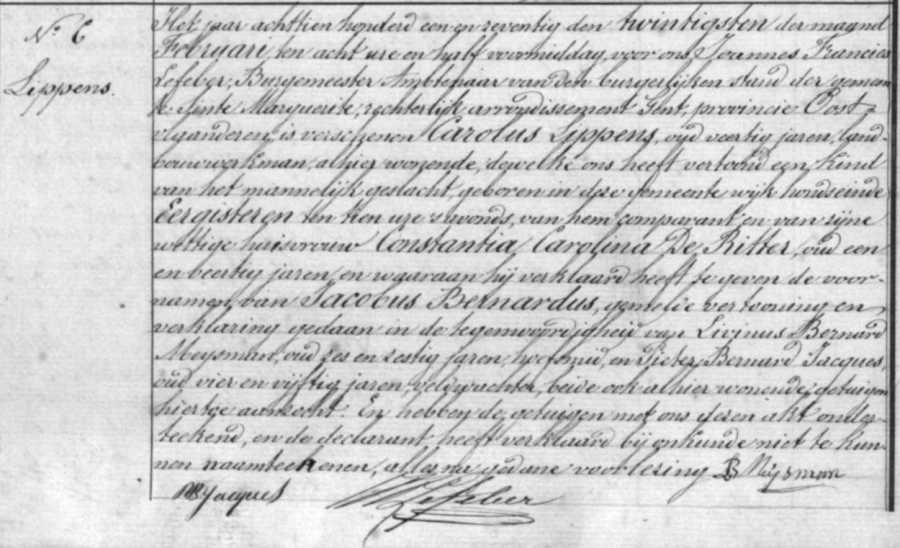 N.° 6
Lippens.
Het jaar achttien honderd een en zeventig den twintigsten der maand
Februari, ten acht ure en half voormiddag, voor ons Joannes Francies
Lefeber, Burgemeester Ambtenaar van den burgerlijken stand der gemeen
te Sinte Marguerite, rechterlijk arrondissement Gent, provincie Oost-
vlaanderen, is verschenen Carolus Lippens, oud veertig jaren, land-
bouwwerkman, alhier wonende, dewelke ons heeft vertoond een kind
van het mannelijk geslacht, geboren in deze gemeente wijk hondseinde
Eergisteren ten tien ure 's avonds, van hem comparant en van zijne
wettige huisvrouw Constantia Carolina De Ritter, oud een
en veertig jaren, en waaraan hij verklaard heeft te geven de voor-
namen van Jacobus Bernardus, gemelde vertooning en
verklaring gedaan in de tegenwoordigheid van Livinus Bernard
Meysman, oud zes en zestig jaren, hoefsmid, en Pieter Bernard Jacques,
oud vier en vijftig jaren, veldwachter, beide ook alhier wonende, getuigen
hiertoe aanzocht. En hebben de getuigen met ons dezen akt onder-
teekend, en de declarant heeft verklaard bij onkunde niet te kun-
nen naamteekenen, alles na gedane voorlezing B Meysman
Jacques Lefeber